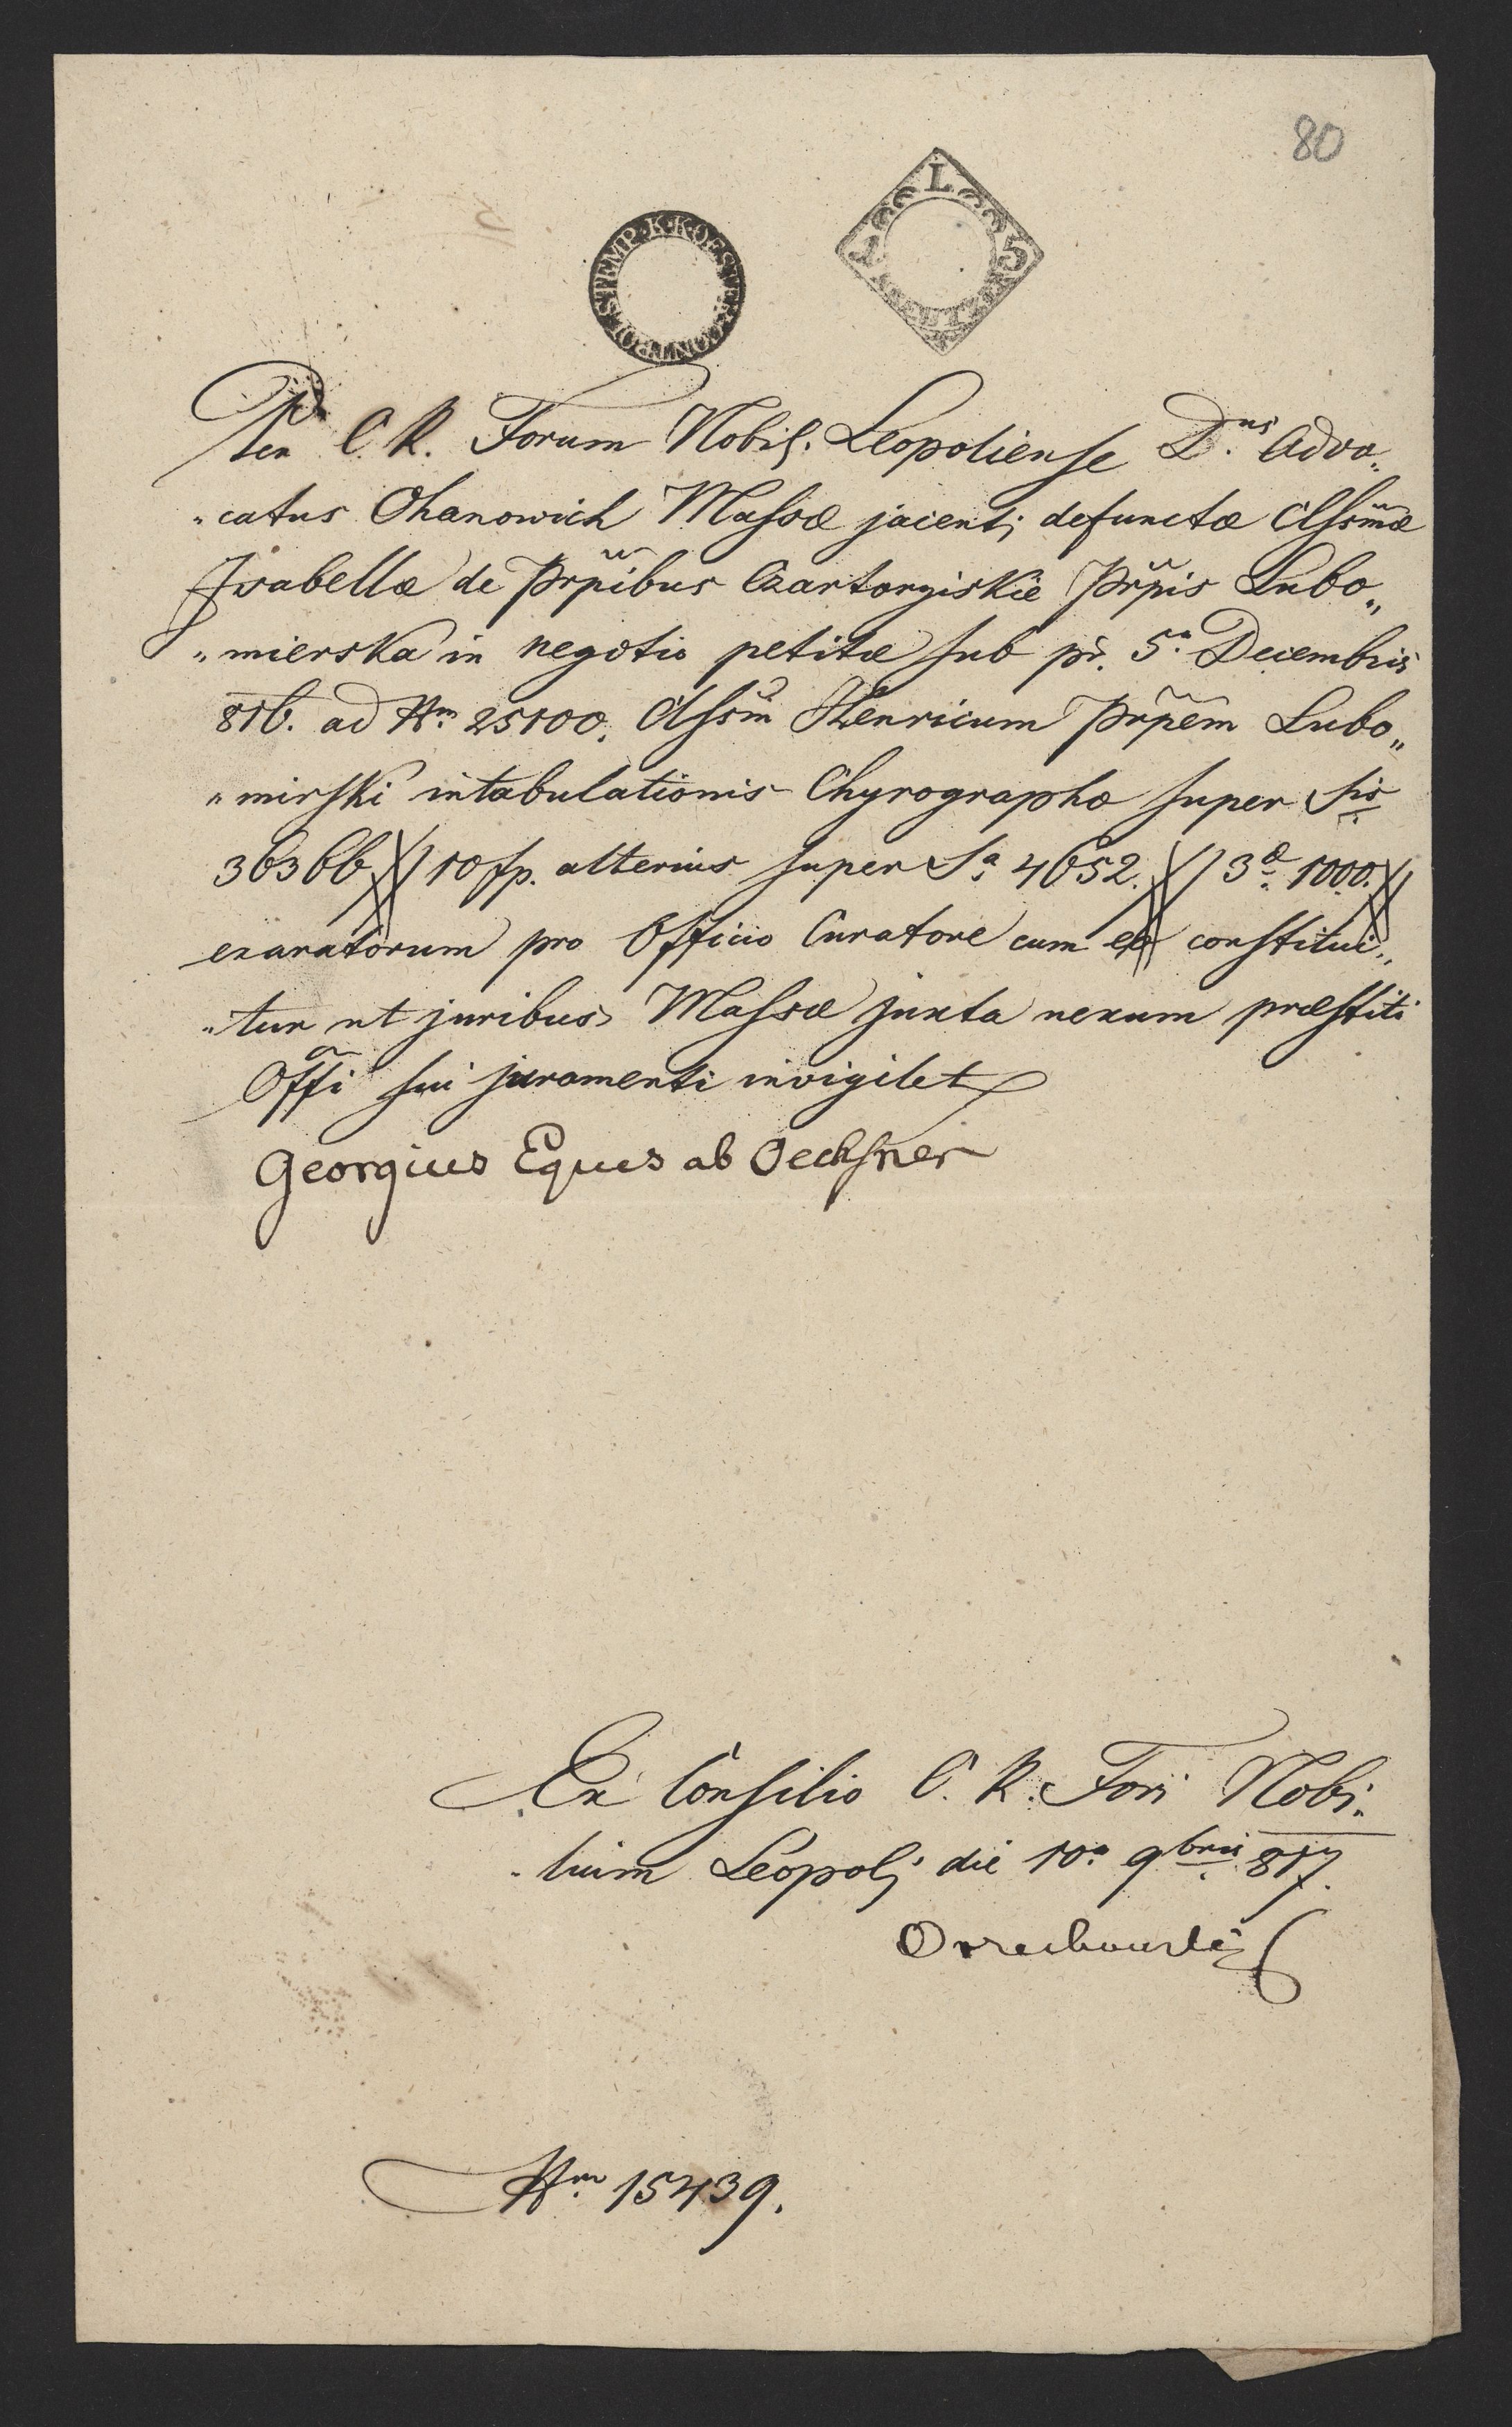 80
STEMP·K·K·OESTER·CONTROL
L 5
Per C. R. Forum Nobil. Leopoliense D.ns Advo„
„catus Ohanowich Massæ jacenti defunctæ Clssmæ
Isabellæ de Prpibus Czartoryiskie Prpis Lubo„
„mierska in negotio petitæ sub pr. 5a Decembris
816. ad Nrm 25100. Clssm Henricum Prpem Lubo„
„mirski intabulationis Chyrographo super Sis
36366 // 10 fp. alterius super Sa 4652. // 3æ 1000. //
exaratorum pro Officio Curatore cum eo constitui„
„tur ut juribus Massæ juxta nexum præstiti
Offi sui juramenti invigilet
Georgius Eques ab Oechsner
Ex Consilio C. R. Fori Nobi„
„lium Leopoli die 10a 9bris 817.
Nrm 15439.